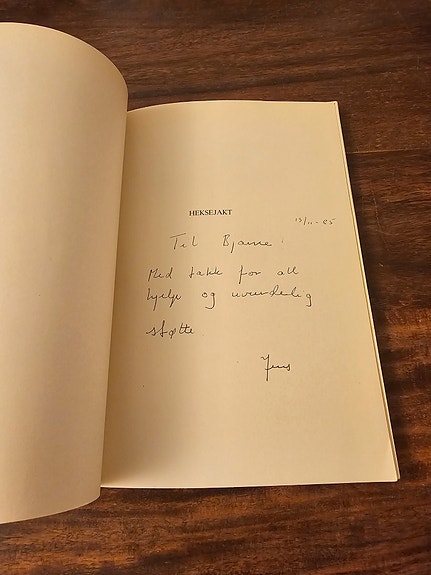 HEKSEJAKT
13/11-85
Til Bjarne!
Med takk for all
hjelp og uvurderlig
støtte
Jens